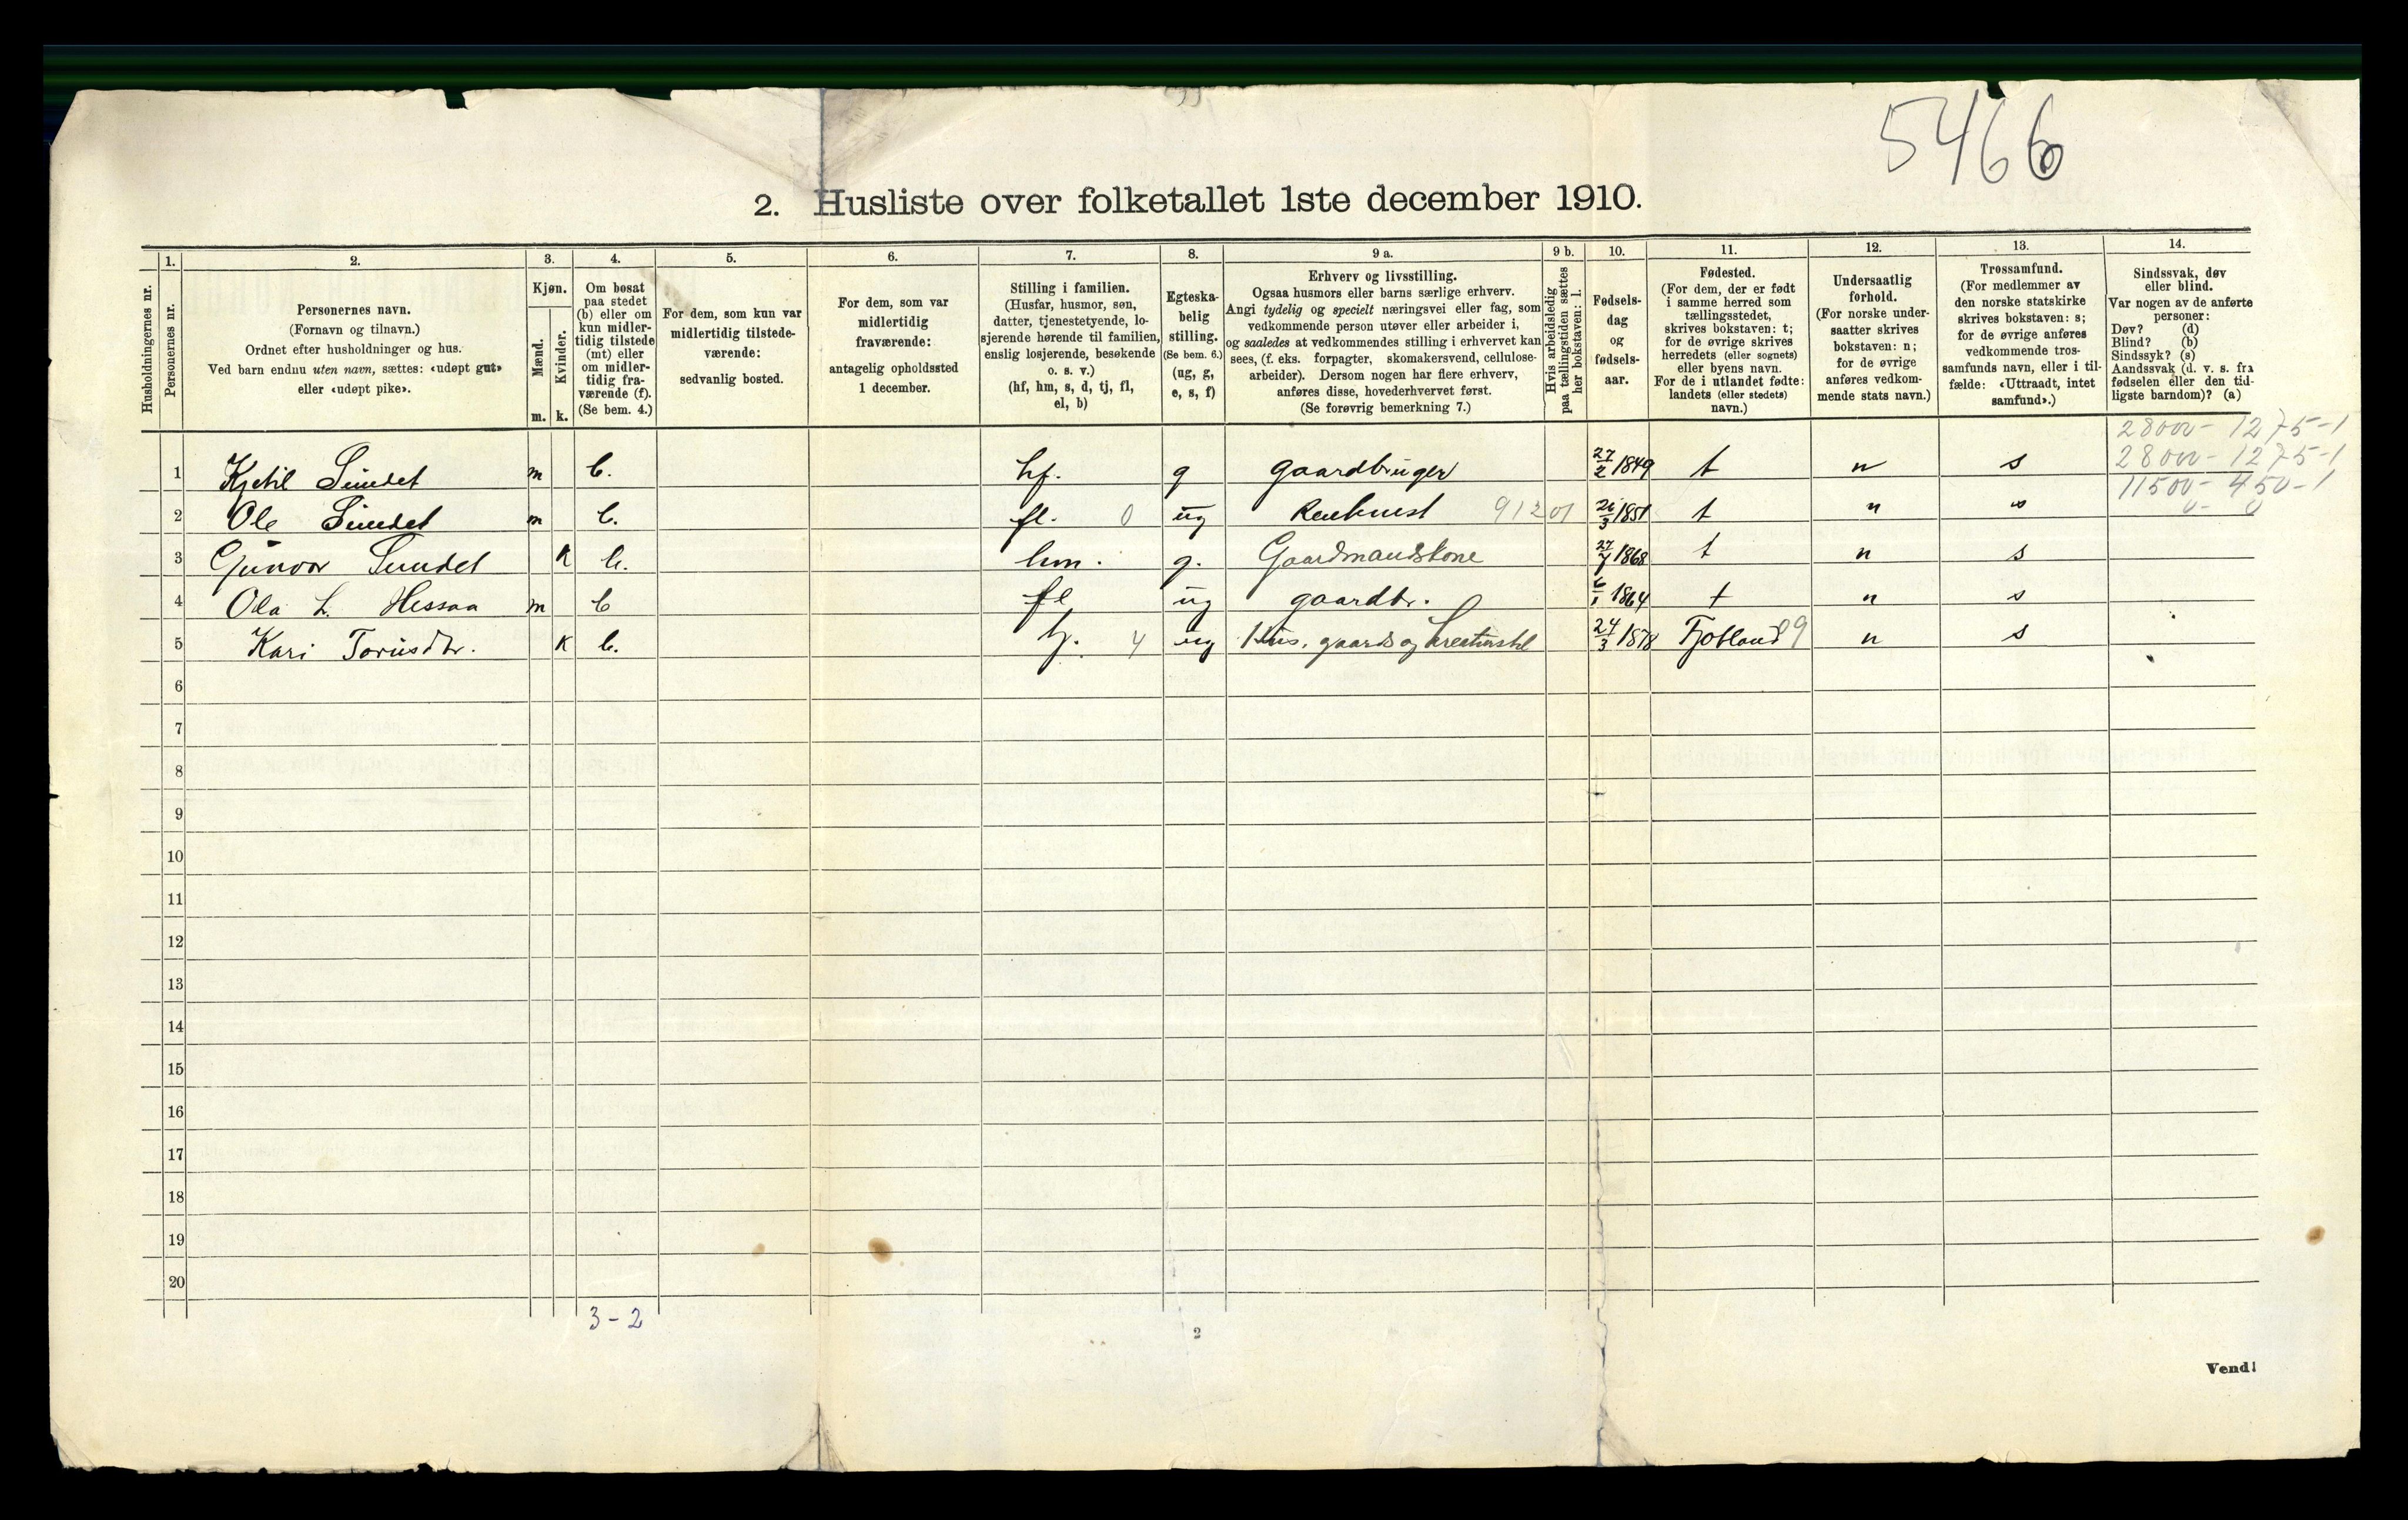 5466
2. Husliste over folketallet 1ste december 1910.
Husholdningernes nr.
1.
Personernes nr.
2.
Personernes navn.
(Fornavn og tilnavn.)
Ordnet efter husholdninger og hus.
Ved barn endnu uten navn, sættes: «udøpt gut»
eller «udøpt pike».
3.
Kjøn.
Mænd.
Kvinder.
m. k.
4.
Om bosat
paa stedet
(b) eller om
kun midler-
tidig tilstede
(mt) eller
om midler-
tidig fra-
værende (f).
(Se bem. 4.)
5.
For dem, som kun var
midlertidig tilstede-
værende:
sedvanlig bosted.
6.
For dem, som var
midlertidig
fraværende:
antagelig opholdssted
1 december.
7.
Stilling i familien.
(Husfar, husmor, søn,
datter, tjenestetyende, lo-
sjerende hørende til familien,
enslig losjerende, besøkende
o. s. v.)
(hf, hm, s, d, tj, fl,
el, b)
8.
Egteska-
belig
stilling.
(Se bem. 6.)
(ug, g,
e, s, f)
9 a.
Erhverv og livsstilling.
Ogsaa husmors eller barns særlige erhverv.
Angi tydelig og specielt næringsvei eller fag, som
vedkommende person utøver eller arbeider i,
og saaledes at vedkommendes stilling i erhvervet kan
sees, (f. eks. forpagter, skomakersvend, cellulose-
arbeider). Dersom nogen har flere erhverv,
anføres disse, hovederhvervet først.
(Se forøvrig bemerkning 7.)
9 b.
Hvis arbeidsledig
paa tællingstiden sættes
her bokstaven: l.
10.
Fødsels-
dag
og
fødsels-
aar.
11.
Fødested.
(For dem, der er født
i samme herred som
tællingsstedet,
skrives bokstaven: t;
for de øvrige skrives
herredets (eller sognets)
eller byens navn.
For de i utlandet fødte:
landets (eller stedets)
navn.)
12.
Undersaatlig
forhold.
(For norske under-
saatter skrives
bokstaven: n;
for de øvrige
anføres vedkom-
mende stats navn.)
13.
Trossamfund.
(For medlemmer av
den norske statskirke
skrives bokstaven: s;
for de øvrige anføres
vedkommende tros-
samfunds navn, eller i til-
fælde: «Uttraadt, intet
samfund».)
14.
Sindssvak, døv
eller blind.
Var nogen av de anførte
personer:
Døv? (d)
Blind? (b)
Sindssyk? (s)
Aandssvak (d. v. s. fra
fødselen eller den tid-
ligste barndom)? (a)
28000 - 1275 - 1
28000 - 1275 - 1
11500 - 450 - 1
0 - 0
1 Kjetil Sundet m b. hf. g gaardbruger 27/2 1849 t n s
2 Ole Sundet m b. fl. 0 ug 912 01 1851 t n s
3 Gunvor Sundet K b. hm. g. Gaardmandskone 27/7 1868 t n s
4 Ola L. Hessaa m b fl ug gaardbr. 6/1 1864 t n s
5 Kari Toriusdtr. K b. tj. 4 ug Hus, gaards og kreaturstel 24/3 1878 Fjotland 9 n s
6
7
8
9
10
11
12
13
14
15
16
17
18
19
20
3 - 2
2
Vend!